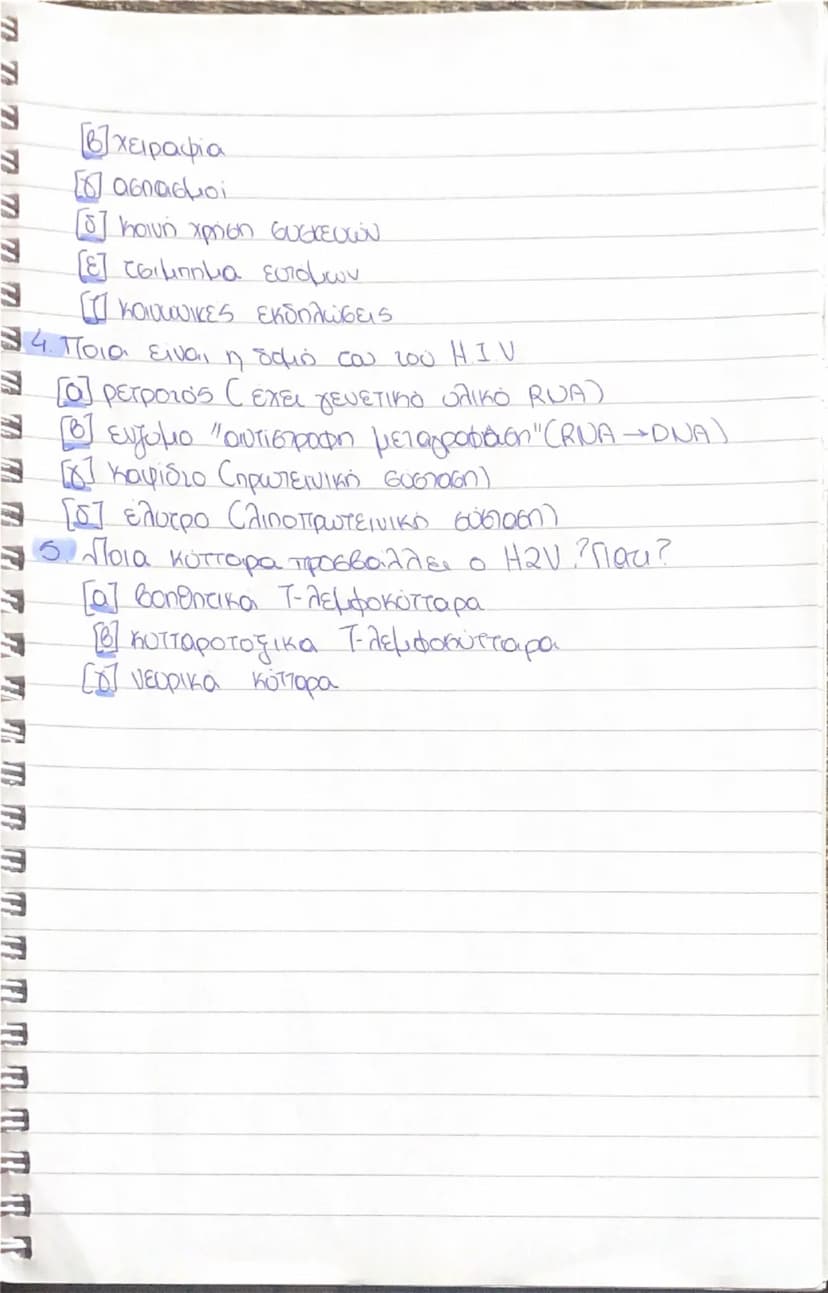 [β] χειραψία
[γ] ασπασμοί
[δ] κοινή χρήση συσκευών
[ε] τσίμπημα εντόμων
κοινωνικές εκδηλώσεις
4. Ποια είναι η δομή του HIV
[α] ρετροιός (έχει γενετικό υλικό RNA)
[β] ένζυμο "αντίστροφη μεταγραφάση" (RNA → DNA)
[γ] καψίδιο (πρωτεινική σύσταση)
[δ] έλυτρο (λιποπρωτεινική σύσταση)
5. Ποια κύτταρα προσβάλλει ο ?
[α] βοηθητικά Τ-λεμφοκύτταρα
[β] κυτταροτοξικά Τ-λεμφοκύτταρα
[γ] νευρικά κύτταρα